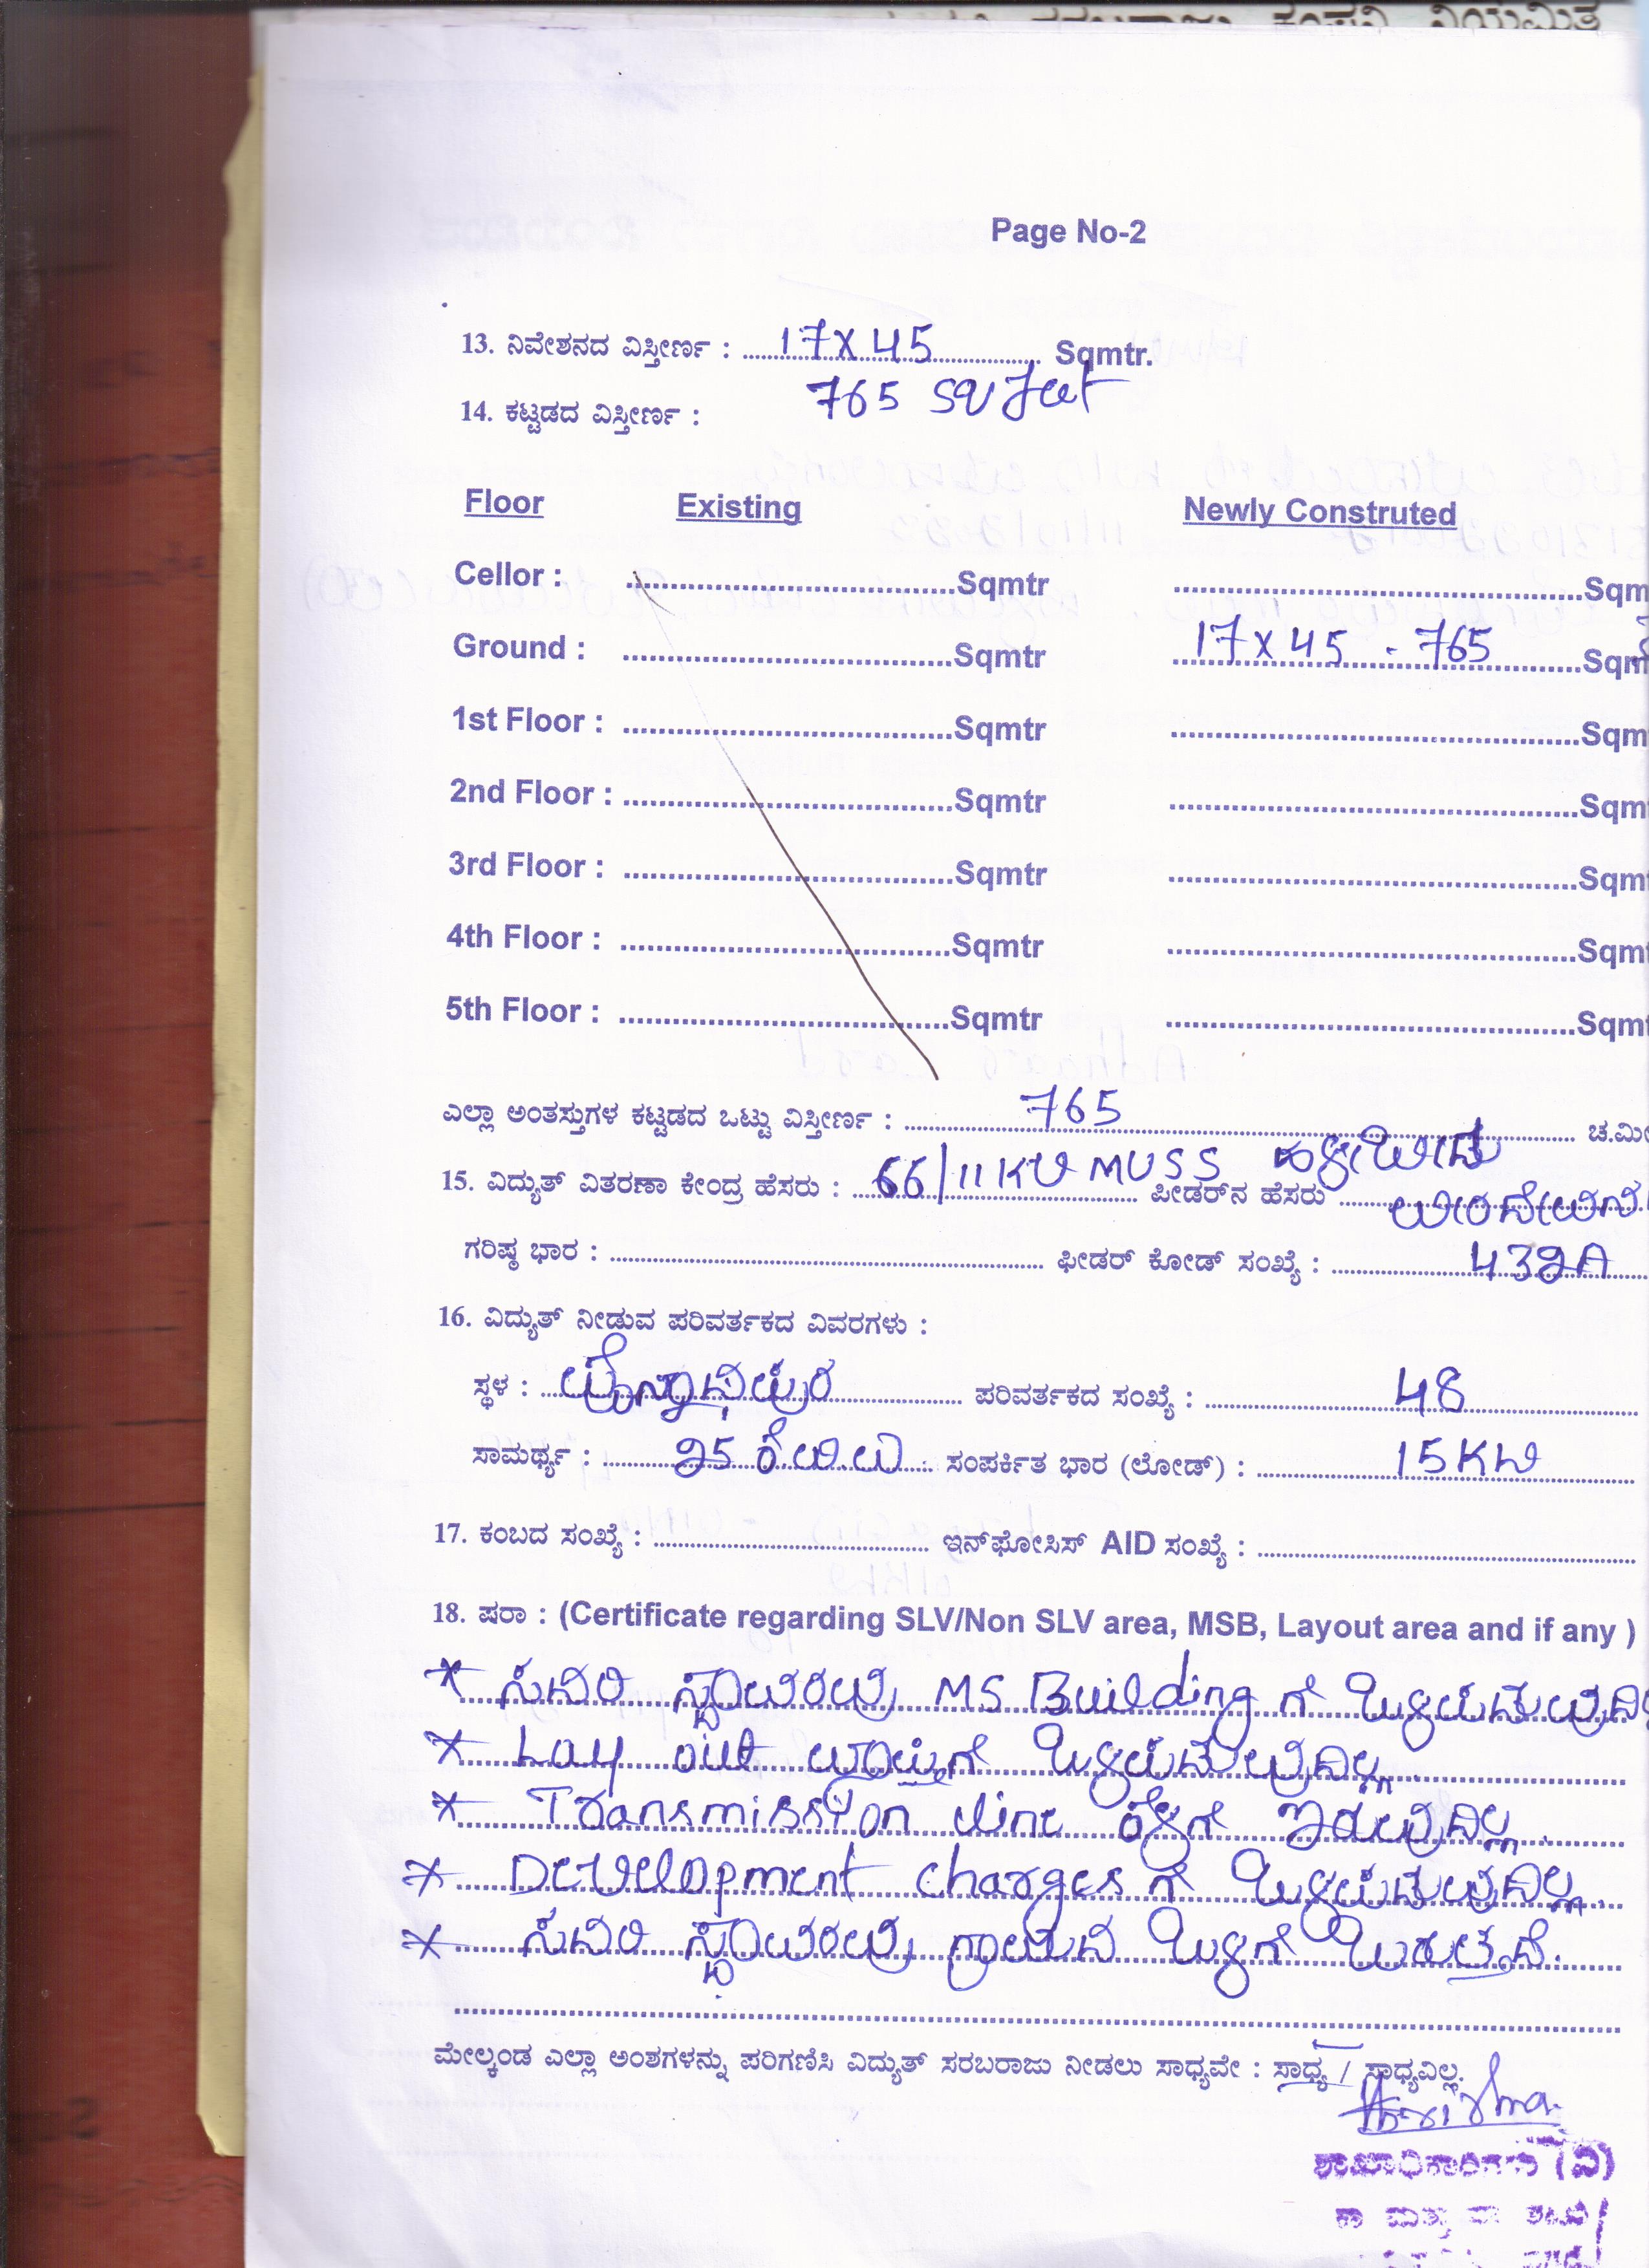 Page No-2
13. ನಿವೇಶನದ ವಿಸ್ತೀರ್ಣ : 17 X 45 Sqmtr.
14. ಕಟ್ಟಡದ ವಿಸ್ತೀರ್ಣ : 765 SQ feet
Floor Existing Newly Constructed
Cellor : Sqmtr Sqm
Ground : Sqmtr 17 X 45 - 765 Sqm
1st Floor : Sqmtr Sqm
2nd Floor : Sqmtr Sqm
3rd Floor : Sqmtr Sqm
4th Floor : Sqmtr Sqm
5th Floor : Sqmtr Sqm
ಎಲ್ಲಾ ಅಂತಸ್ತುಗಳ ಕಟ್ಟಡದ ಒಟ್ಟು ವಿಸ್ತೀರ್ಣ : 765 ಚ.ಮೀ
15. ವಿದ್ಯುತ್ ವಿತರಣಾ ಕೇಂದ್ರ ಹೆಸರು : 66/11KV MUSS ಹಳೇಬೀಡು ಪೀಡರ್‌ನ ಹೆಸರು
ಗರಿಷ್ಠ ಭಾರ : ಫೀಡರ್ ಕೋಡ್ ಸಂಖ್ಯೆ :
16. ವಿದ್ಯುತ್ ನೀಡುವ ಪರಿವರ್ತಕದ ವಿವರಗಳು :
ಸ್ಥಳ : ಪರಿವರ್ತಕದ ಸಂಖ್ಯೆ : 48
ಸಾಮರ್ಥ್ಯ : 25 ಕೆ.ವಿ.ಎ ಸಂಪರ್ಕಿತ ಭಾರ (ಲೋಡ್) : 15KW
17. ಕಂಬದ ಸಂಖ್ಯೆ : ಇನ್‌ಫೋಸಿಸ್ AID ಸಂಖ್ಯೆ :
18. ಷರಾ : (Certificate regarding SLV/Non SLV area, MSB, Layout area and if any )
* ಸದರಿ ಸ್ಥಾವರವು MS Building ಗೆ ಒಳಪಡುವುದಿಲ್ಲ
* Lay out ವ್ಯಾಪ್ತಿಗೆ ಒಳಪಡುವುದಿಲ್ಲ.
* Transmission line ಕೆಳಗೆ ಇರುವುದಿಲ್ಲ.
* Development charges ಗೆ ಒಳಪಡುವುದಿಲ್ಲ.
* ಸದರಿ ಸ್ಥಾವರವು ಗ್ರಾಮದ ಒಳಗೆ ಬರುತ್ತದೆ.
ಮೇಲ್ಕಂಡ ಎಲ್ಲಾ ಅಂಶಗಳನ್ನು ಪರಿಗಣಿಸಿ ವಿದ್ಯುತ್ ಸರಬರಾಜು ನೀಡಲು ಸಾಧ್ಯವೇ : ಸಾಧ್ಯ / ಸಾಧ್ಯವಿಲ್ಲ.
ಶಾಖಾಧಿಕಾರಿಗಳು (ವಿ)